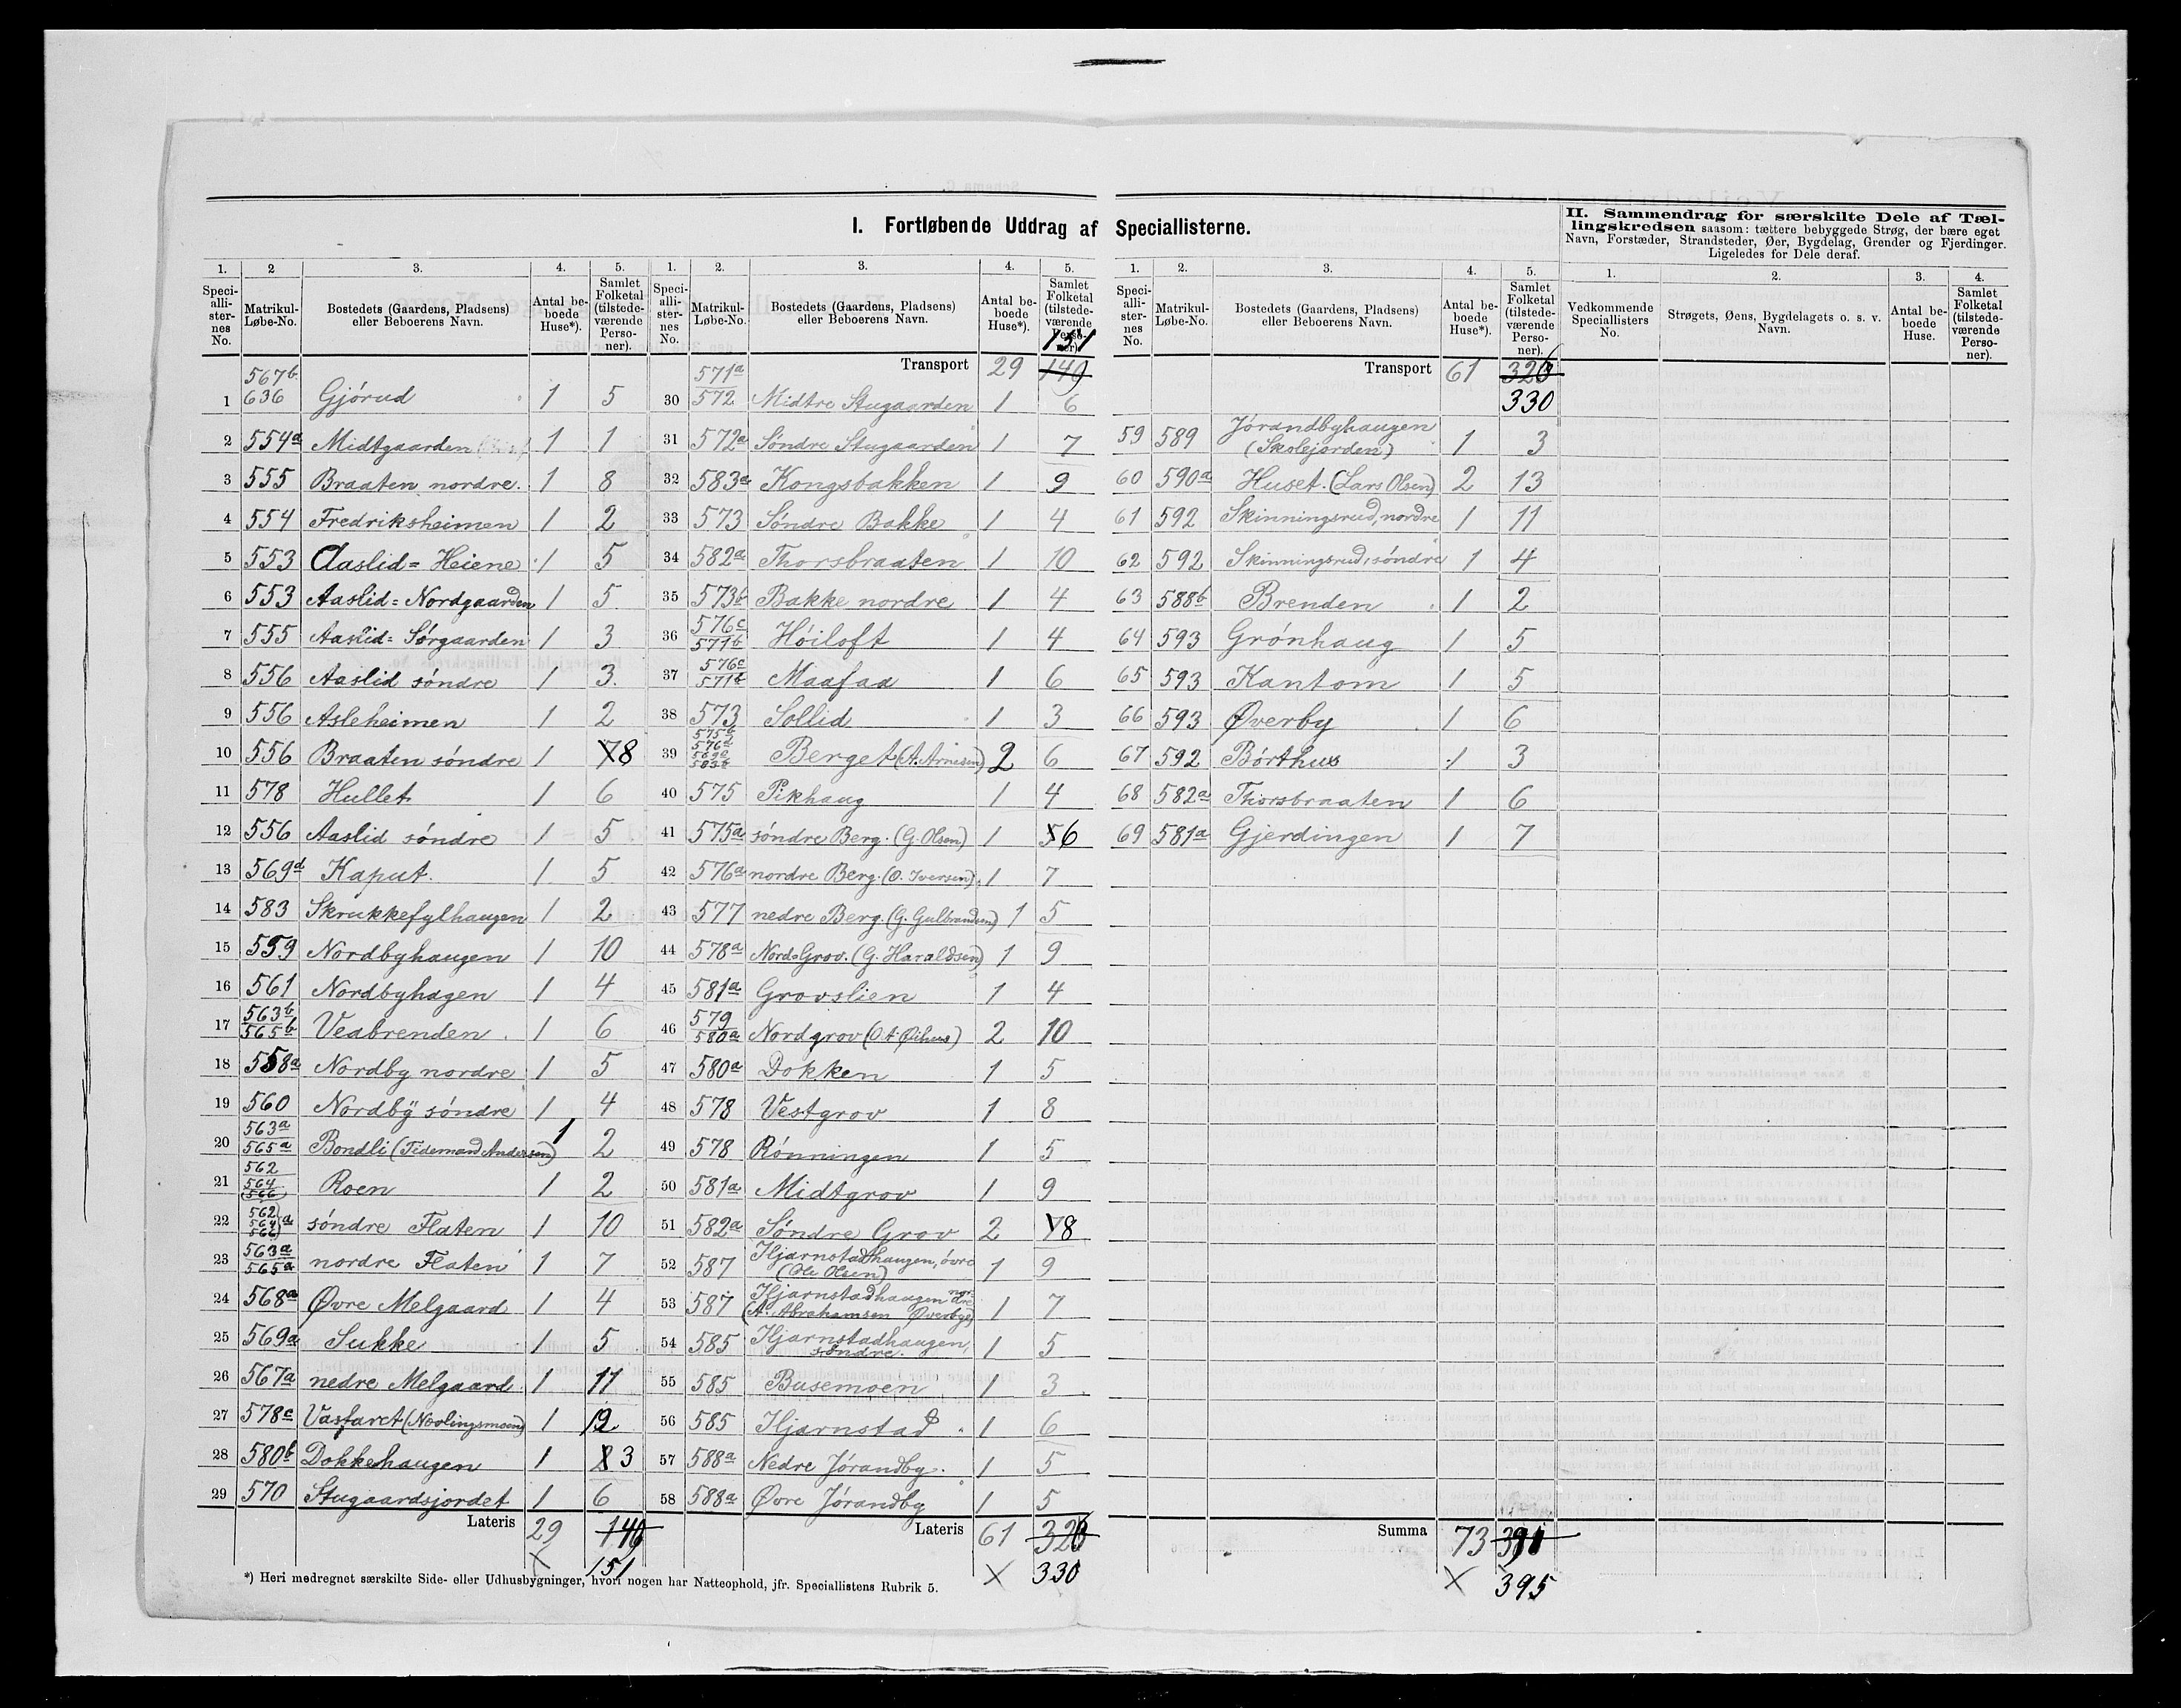 I. Fortløbende Uddrag af Speciallisterne.
II. Sammendrag for særskilte Dele af Tæl-
lingskredsen saasom: tættere bebyggede Strøg, der bære eget
Navn, Forstæder, Strandsteder, Øer, Bygdelag, Grender og Fjerdinger.
Ligeledes for Dele deraf.
1. 2 3. 4. 5.
Speci-alli-ster-nes No. Matrikul-Løbe-No. Bostedets (Gaardens, Pladsens) eller Beboerens Navn. Antal be-boede Huse*). Samlet Folketal (tilstede-værende Perso-ner).
1 567b 636 Gjørud 1 5
2 554a Midtgaarden 1 1
3 555 Braaten nordre. 1 8
4 554 Fredriksheimen 1 2
5 553 Aaslid= Heiene 1 5
6 553 Aaslid= Nordgaarden 1 5
7 555 Aaslid= Sørgaarden 1 3
8 556 Aaslid søndre 1 3
9 556 Asleheimen 1 2
10 556 Braaten søndre 1 8
11 578 Hullet 1 6
12 556 Aaslid søndre 1 5
13 569d Kaput. 1 5
14 583 Skrukkefylhaugen 1 2
15 559 Nordbyhaugen 1 10
16 561 Nordbyhagen 1 4
17 563b 565b Veabrenden 1 6
18 558a Nordby nordre 1 5
19 560 Nordby søndre 1 4
20 563a 565a Bondli (Tidemand Andersen) 1 2
21 562 564 566 Roen 1 2
22 562 564 566 a søndre Flaten 1 10
23 563a 565a nordre Flaten 1 7
24 568a Øvre Melgaard 1 4
25 569a Sukke 1 5
26 567a nedre Melgaard 1 11
27 578c Vasfaret 1 12
28 580b Dokkehaugen 1 3
29 570 Stugaardsjordet 1 6
Lateris 29 149
151
*) Heri medregnet særskilte Side- eller Udhusbygninger, hvori nogen har Natteophold, jfr. Speciallistens Rubrik 5.
1. 2. 3. 4. 5.
Speci-alli-ster-nes No. Matrikul-Løbe-No. Bostedets (Gaardens, Pladsens) eller Beboerens Navn. Antal be-boede Huse*). Samlet Folketal (tilstede-værende Perso-ner).
151
Transport 29 149
30 571a 572 Midtre Stugaarden 1 6
31 572a Søndre Stugaarden 1 7
32 583a Kongsbakken 1 9
33 573 Søndre Bakke 1 4
34 582a Thorsbraaten 1 10
35 573b Bakke nordre 1 4
36 576c 571b Høiloft 1 4
37 576c 571b Maafaa 1 6
38 573 Sollid 1 3
39 575b 576a Berget (A. Arnesen) 2 6
40 575 Pikhaug 1 4
41 575a søndre Berg. (G. Olsen) 1 6
42 576a nordre Berg. (O. Iversen) 1 7
43 577 nedre Berg. (G. Gulbrandsen) 1 5
44 578a Nord=Grov. (G. Haraldsen) 1 9
45 581a Grovslien 1 4
46 579 580a Nordgrov 2 10
47 580a Dokken 1 5
48 578 Vestgrov 1 8
49 578 Rønningen 1 5
50 581a Midtgrov 1 9
51 582a Søndre Grov 2 8
52 587 Hjarnstadhaugen, øvre (Ole Olsen) 1 9
53 587 Hjarnstadhaugen nordre (A. Abrahamsen Øverbye) 1 7
54 585 Hjarnstadhaugen, søndre. 1 5
55 585 Busemoen 1 3
56 585 Hjarnstad 1 6
57 588a Nedre Jørandby. 1 5
58 588a Øvre Jørandby 1 5
Lateris 61 326
330
1. 2. 3. 4. 5.
Speci-alli-ster-nes No. Matrikul-Løbe-No. Bostedets (Gaardens, Pladsens) eller Beboerens Navn. Antal be-boede Huse*). Samlet Folketal (tilstede-værende Perso-ner).
Transport 61 326
330
59 589 Jørandbyhaugen (Skolejorden) 1 3
60 590a Huset. (Lars Olsen) 2 13
61 592 Skinningsrud, nordre 1 11
62 592 Skinningsrud, søndre 1 4
63 588b Brenden 1 2
64 593 Grønhaug 1 5
65 593 Kantom 1 5
66 593 Øverby 1 6
67 592 Børthus 1 3
68 582a Thorsbraaten 1 6
69 581a Gjerdingen 1 7
Summa 73 391
395
1. 2. 3. 4.
Vedkommende Speciallisters No. Strøgets, Øens, Bygdelagets o. s. v. Navn. Antal be-boede Huse. Samlet Folketal (tilstede-værende Perso-ner).